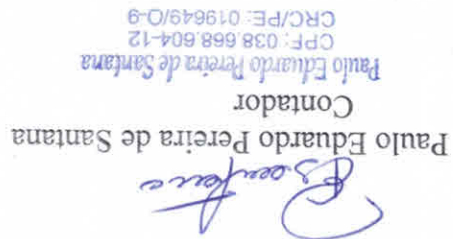 Paulo Eduardo Pereira de Santana
Contador
Paulo Eduardo Pereira de Santana
CPF: 038.668.604-12
CRC/PE: 019649/O-9